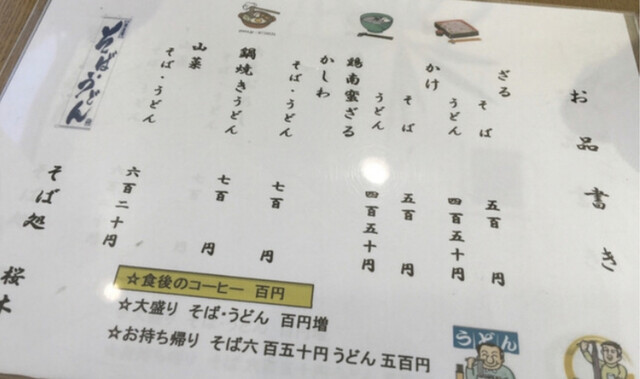 お品書き
ざる
そば
五百円
うどん
四百五十円
かけ
そば
五百円
うどん
四百五十円
鶏南蛮ざる
かしわ
そば・うどん
七百円
鍋焼きうどん
七百円
山菜
そば・うどん
六百二十円
そば・うどん
そば処
桜木
☆食後のコーヒー 百円
☆大盛り そば・うどん 百円増
☆お持ち帰り そば六百五十円うどん五百円
うどん